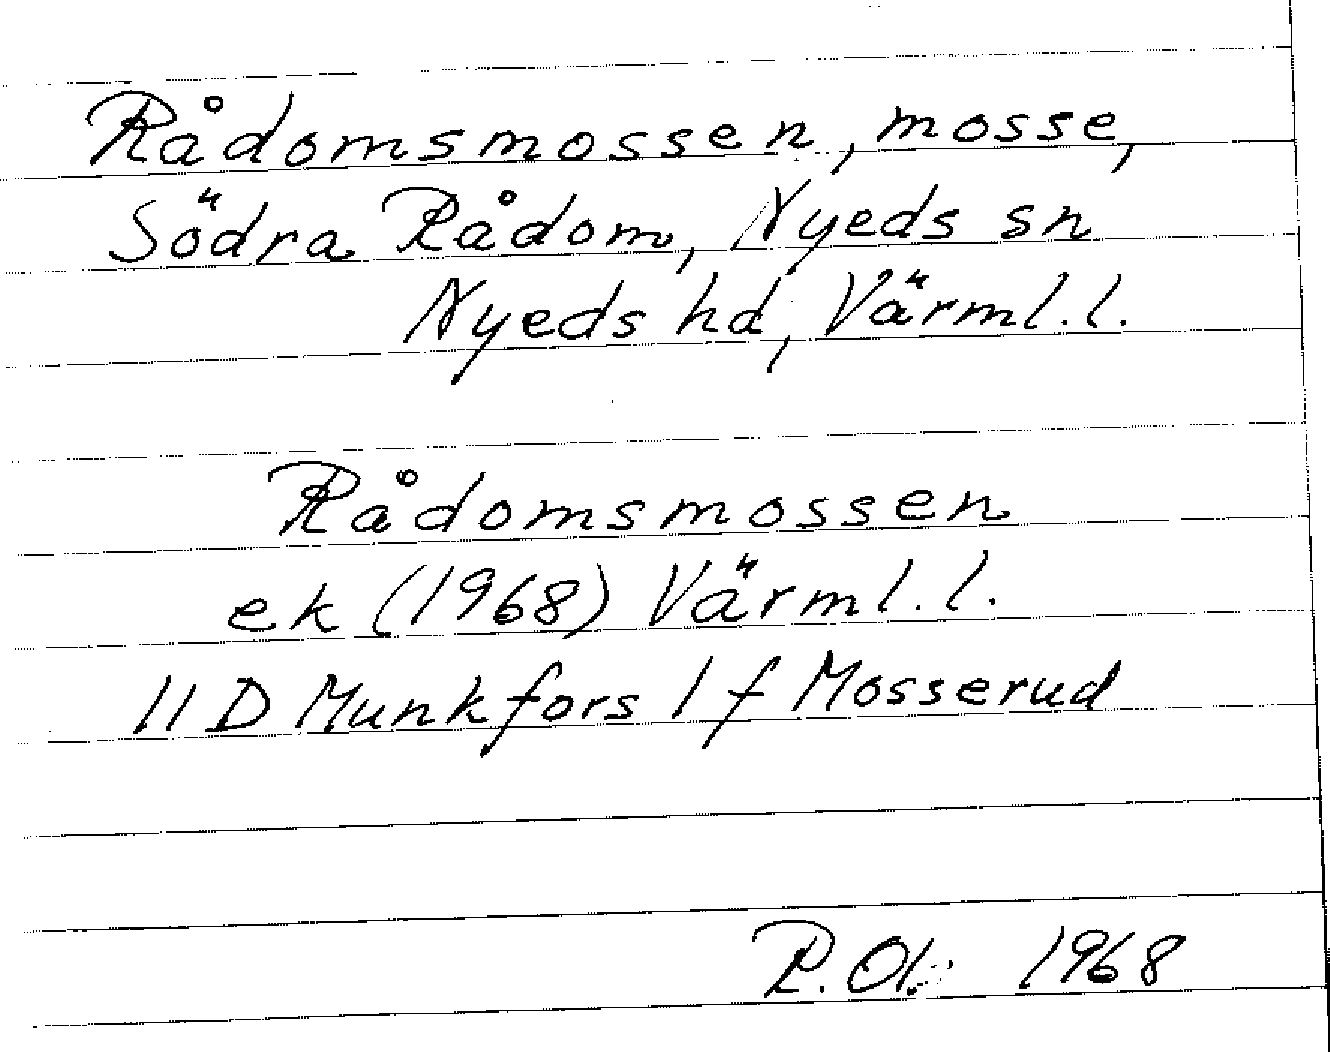 Rådomsmossen, mosse,
Södra Rådom, Nyeds sn
Nyeds hd, Värml. l.
Rådomsmossen
ek (1968) Värml. l.
11 D Munkfors 1 f Mosserud
R. Ol. 1968